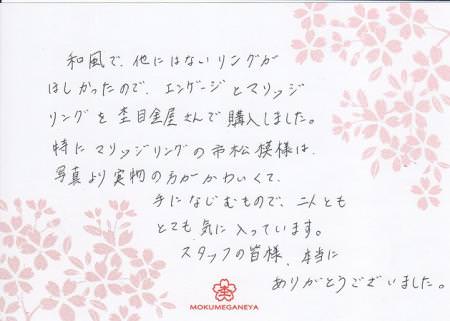 和風で、他にはないリングが
ほしかったので、エンゲージとマリッジ
リングを杢目金屋さんで購入しました。
特にマリッジリングの市松模様は、
写真より実物の方がかわいくて、
手になじむもので、二人とも
とても気に入っています。
スタッフの皆様、本当に
ありがとうございました。
杢
MOKUMEGANEYA